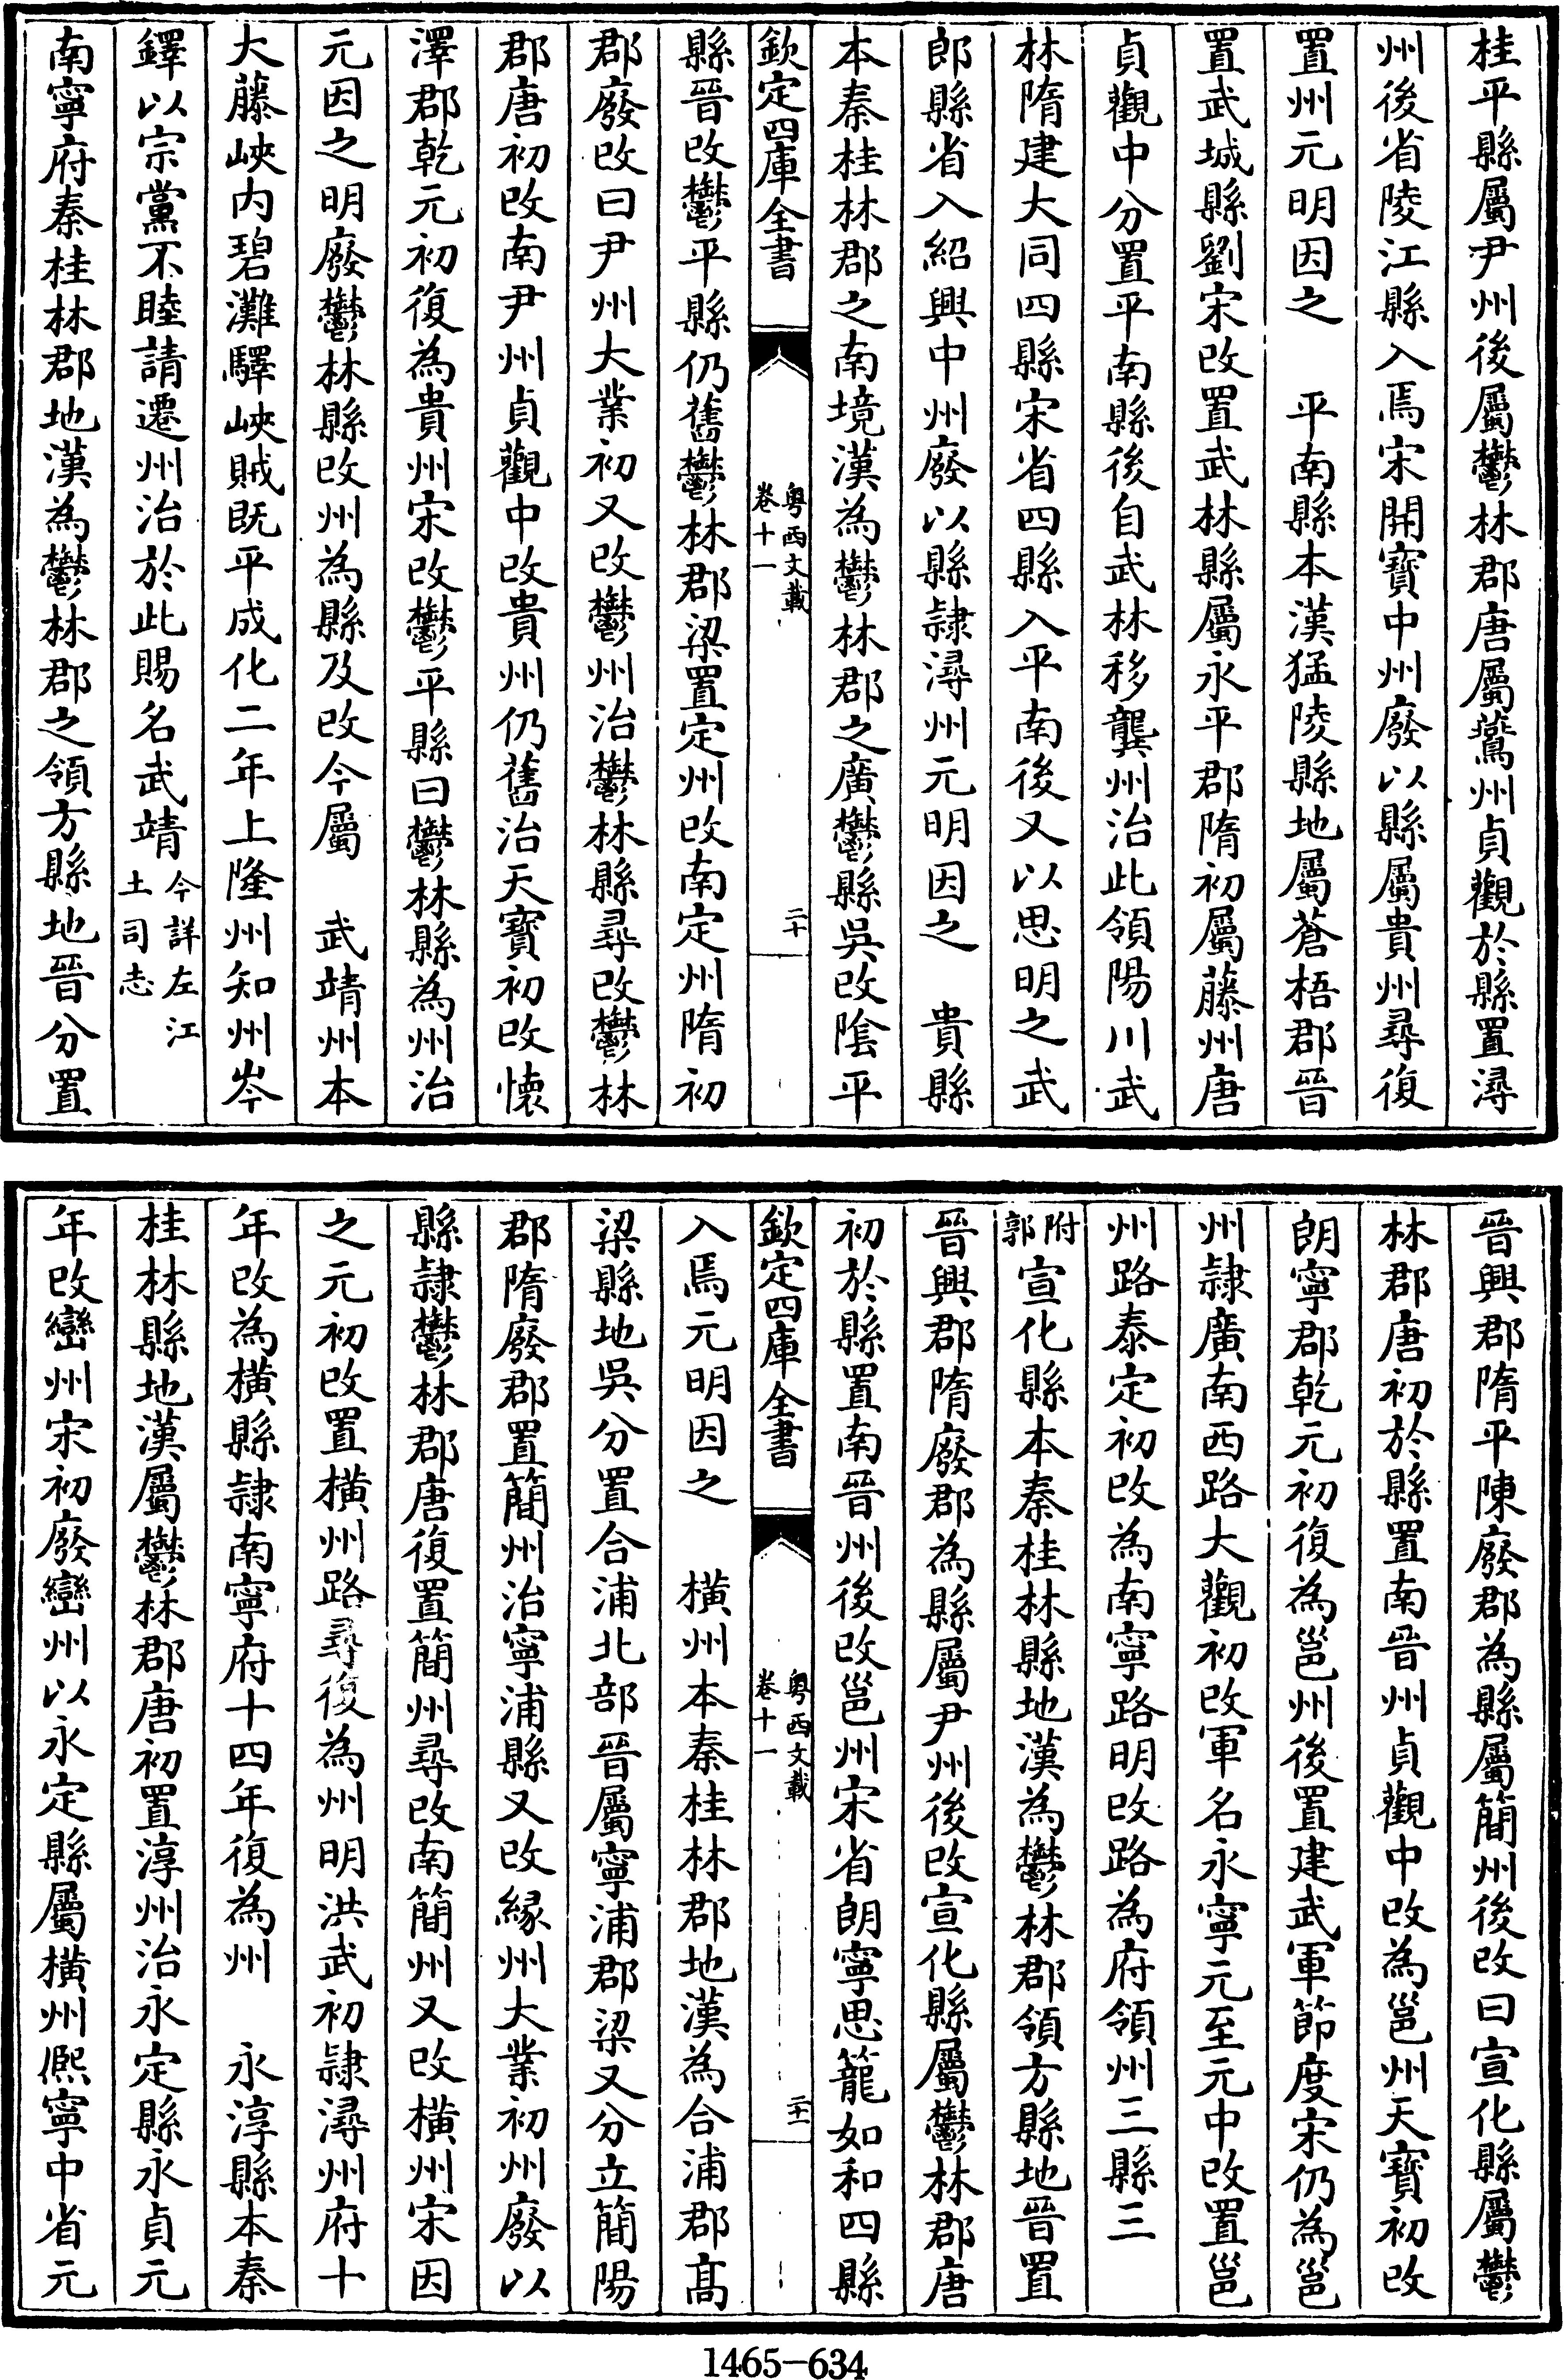 桂平縣屬尹州後屬鬱林郡唐屬鷰州貞觀於縣置潯
州後省陵江縣入焉宋開寶中州廢以縣屬貴州尋復
置州元明因之　平南縣本漢猛陵縣地屬蒼梧郡晉
置武城縣劉宋改置武林縣屬永平郡隋初屬藤州唐
貞觀中分置平南縣後自武林移龔州治此領陽川武
林隋建大同四縣宋省四縣入平南後又以思明之武
郎縣省入紹興中州廢以縣隷潯州元明因之　貴縣
本秦桂林郡之南境漢為鬱林郡之廣鬱縣吳改陰平
欽定四庫全書
粵西文載
卷十一
二十
縣晉改鬱平縣仍舊鬱林郡梁置定州改南定州隋初
郡廢改曰尹州大業初又改鬱州治鬱林縣尋改鬱林
郡唐初改南尹州貞觀中改貴州仍舊治天寶初改懷
澤郡乾元初復為貴州宋改鬱平縣曰鬱林縣為州治
元因之明廢鬱林縣改州為縣及改今屬　武靖州本
大藤峽內碧灘驛峽賊既平成化二年上隆州知州岑
鐸以宗黨不睦請遷州治於此賜名武靖今詳左江
土司志
南寧府秦桂林郡地漢為鬱林郡之領方縣地晉分置
晉興郡隋平陳廢郡為縣屬簡州後改曰宣化縣屬鬱
林郡唐初於縣置南晉州貞觀中改為邕州天寶初改
朗寧郡乾元初復為邕州後置建武軍節度宋仍為邕
州隷廣南西路大觀初改軍名永寧元至元中改置邕
州路泰定初改為南寧路明改路為府領州三縣三
附
郭宣化縣本秦桂林縣地漢為鬱林郡領方縣地晉置
晉興郡隋廢郡為縣屬尹州後改宣化縣屬鬱林郡唐
初於縣置南晉州後改邕州宋省朗寧思籠如和四縣
欽定四庫全書
粵西文載
卷十一
二十一
入焉元明因之　橫州本秦桂林郡地漢為合浦郡高
梁縣地吳分置合浦北部晉屬寧浦郡梁又分立簡陽
郡隋廢郡置簡州治寧浦縣又改緣州大業初州廢以
縣隷鬱林郡唐復置簡州尋改南簡州又改橫州宋因
之元初改置橫州路尋復為州明洪武初隷潯州府十
年改為橫縣隷南寧府十四年復為州　永淳縣本秦
桂林縣地漢屬鬱林郡唐初置淳州治永定縣永貞元
年改巒州宋初廢巒州以永定縣屬橫州熈寧中省元
1465-634